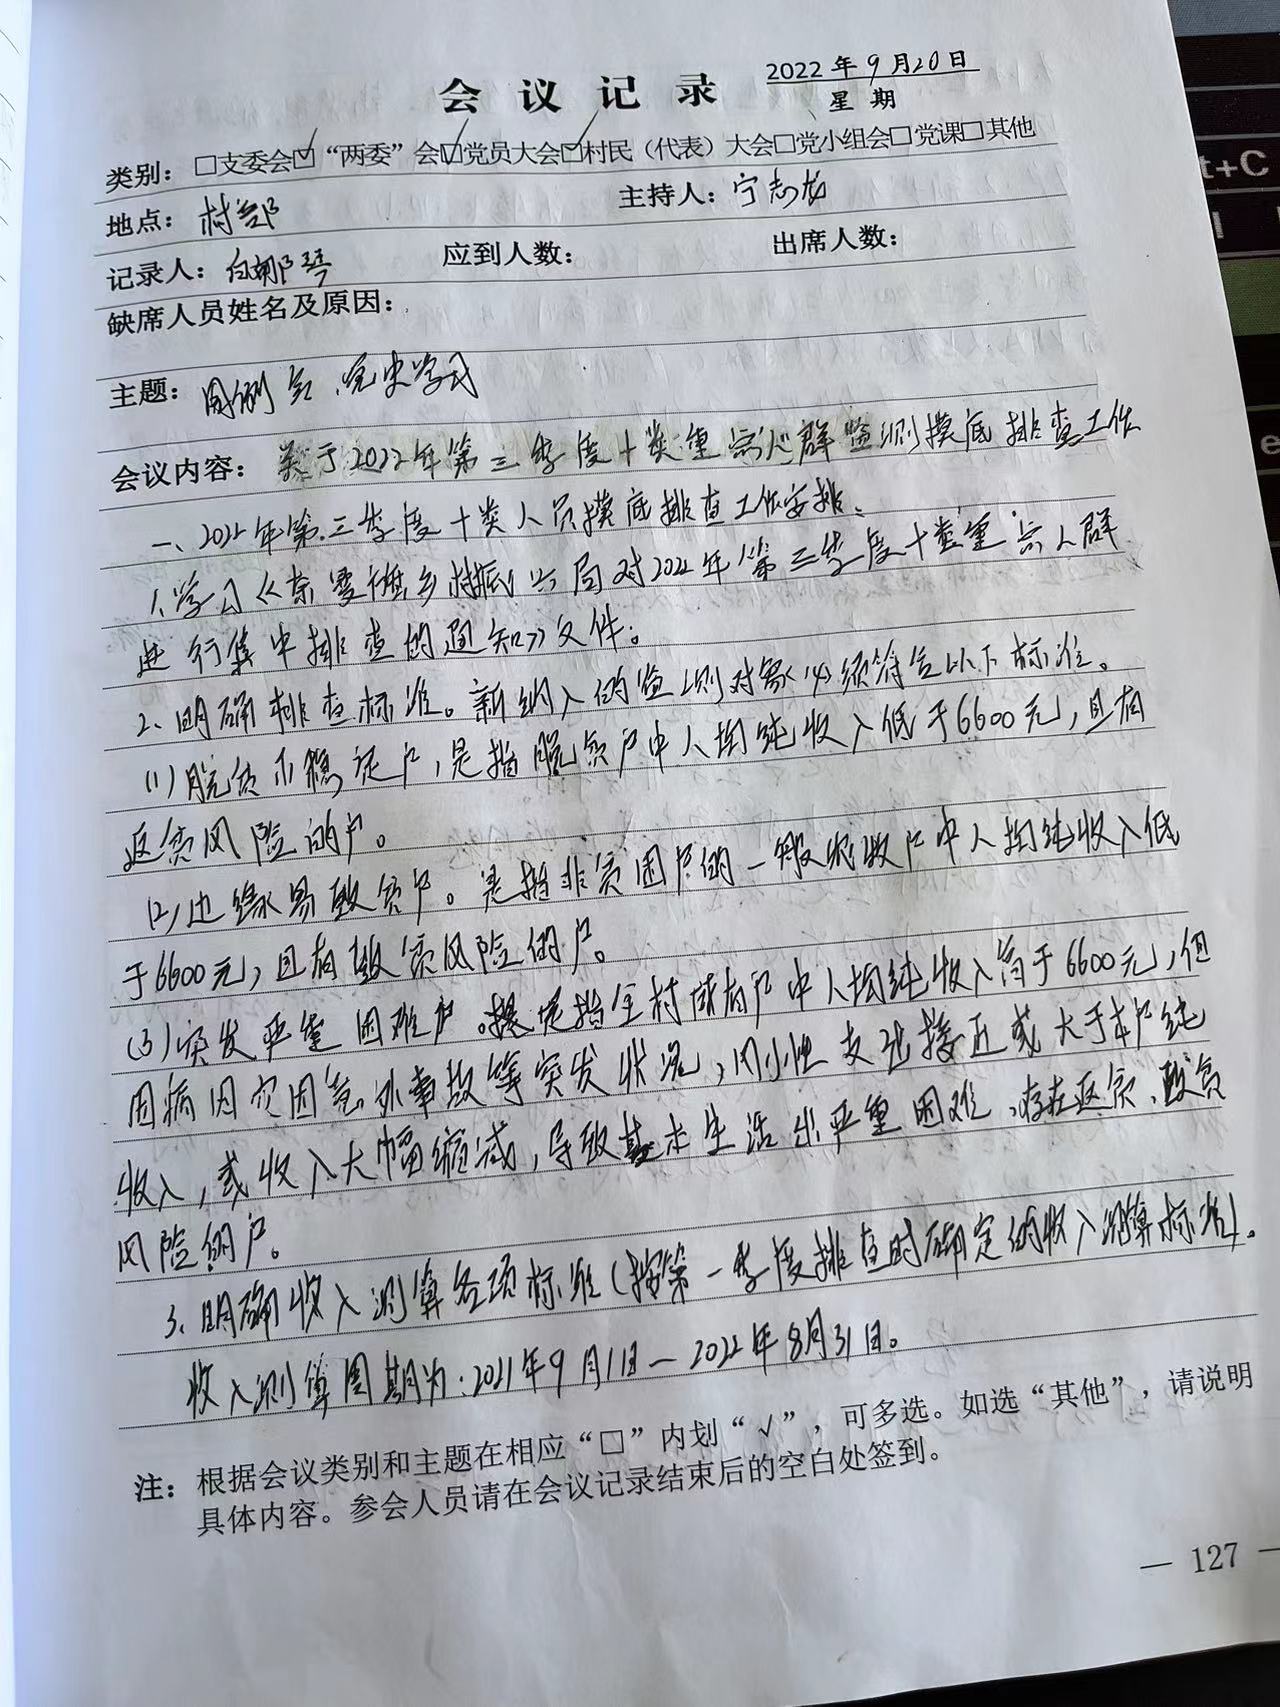 会议记录
2022年9月20日
星期
类别：□支委会☑“两委”会☑党员大会☑村民（代表）大会□党小组会□党课□其他
地点：村部 主持人：宁志龙
记录人：白那琴 应到人数： 出席人数：
缺席人员姓名及原因：
主题：周例会、党史学习
会议内容：关于2022年第三季度十类重点人群监测摸底排查工作
一、2022年第三季度十类人员摸底排查工作安排。
1、学习《奈曼旗乡村振兴局对2022年第三季度十类重点人群
进行集中排查的通知》文件。
2、明确排查标准。新纳入的监测对象必须符合以下标准。
(1)脱贫不稳定户，是指脱贫户中人均纯收入低于6600元，且有
返贫风险的户。
(2)边缘易致贫户。是指非贫困户的一般农牧户中人均纯收入低
于6600元，且有致贫风险的户。
(3)突发严重困难户。是指全村所有户中人均纯收入高于6600元，但
因病因灾因意外事故等突发状况，刚性支出接近或大于本户纯
收入，或收入大幅缩减，导致基本生活出严重困难、存在返贫、致贫
风险的户。
3、明确收入测算各项标准（按第一季度排查时确定的收入测算标准）。
收入测算周期为：2021年9月1日—2022年8月31日。
注：根据会议类别和主题在相应“□”内划“√”，可多选。如选“其他”，请说明
具体内容。参会人员请在会议记录结束后的空白处签到。
— 127 —
t+C